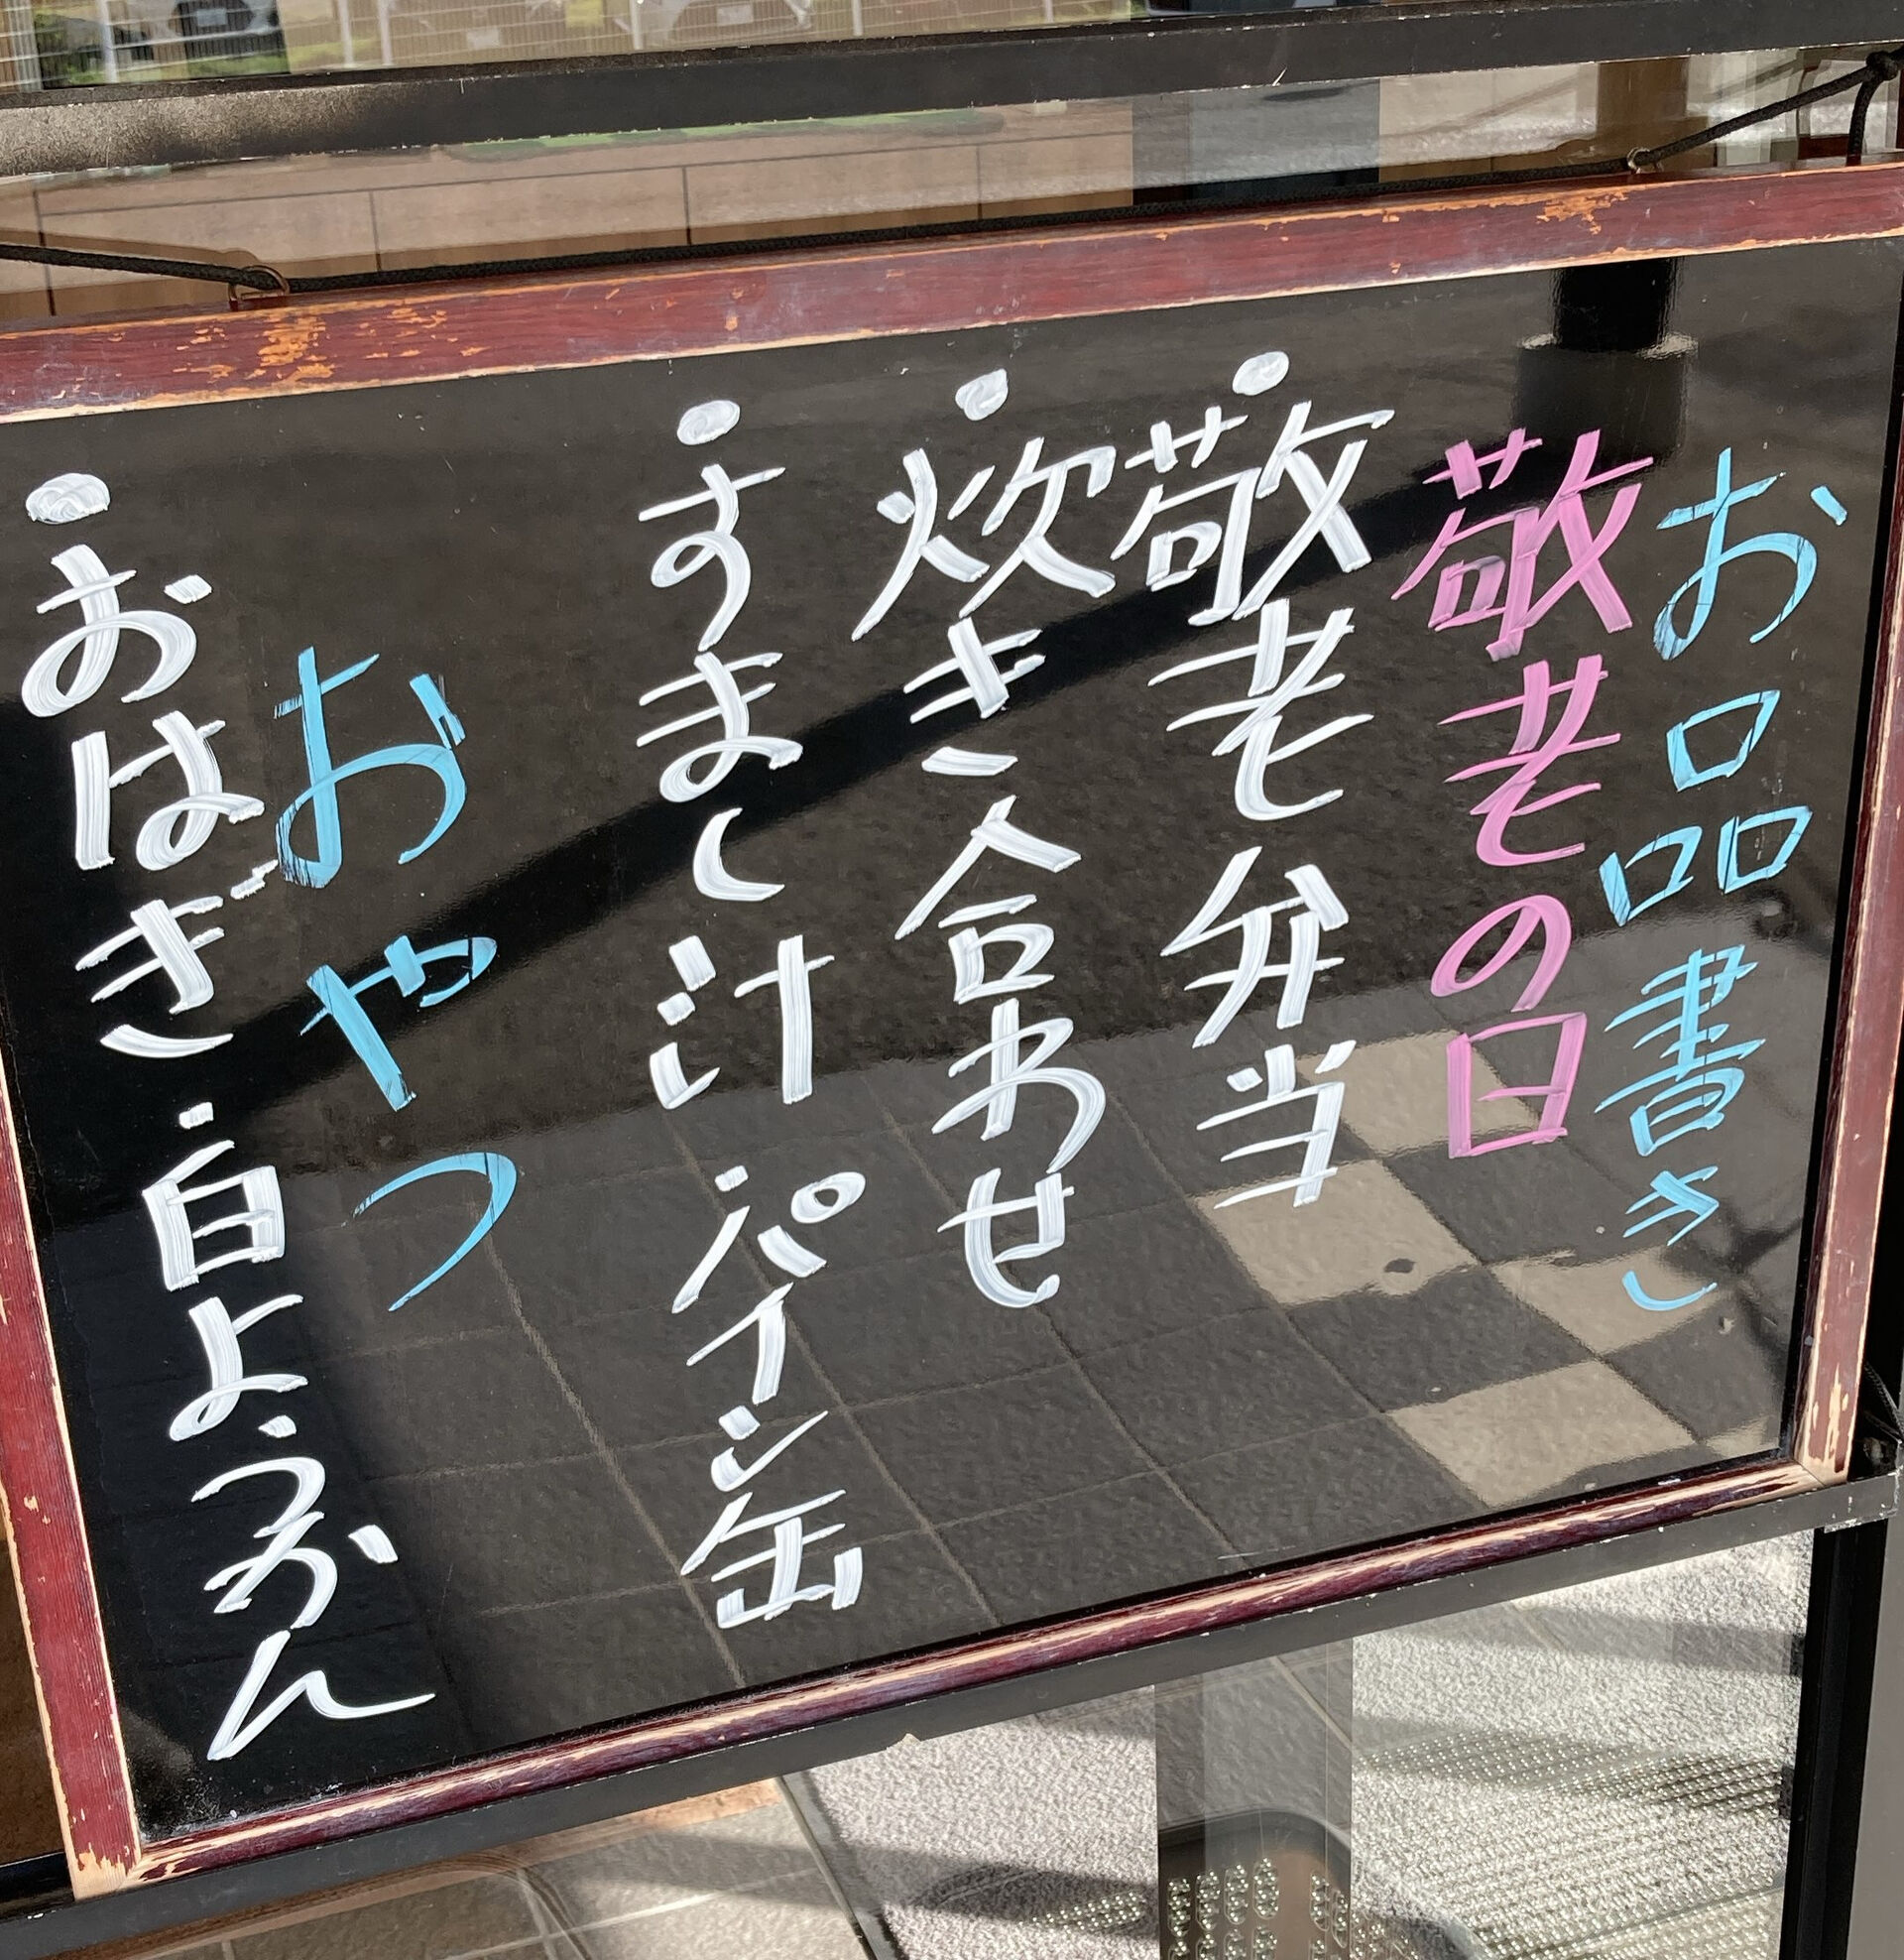 お品書き
敬老の日
・敬老弁当
・炊き合わせ
・すまし汁・パイン缶
おやつ
・おはぎ・白ようかん